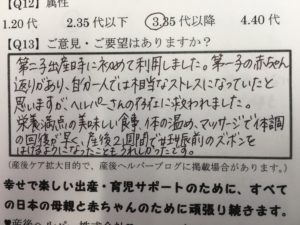 【Q12】属性
1.20代 2.35代以下 3.35代以降 4.40代
【Q13】ご意見・ご要望はありますか？
第二子出産時に初めて利用しました。第一子の赤ちゃん
返りがあり、自分一人では相当なストレスになっていたと
思いますが、ヘルパーさんの存在に救われました。
栄養満点の美味しい食事、体の温め、マッサージで体調
の回復が早く、産後2週間で妊娠前のズボンを
はけるようになったこともうれしかったです。
（産後ケア拡大目的で、産後ヘルパーブログに掲載場合があります。）
幸せで楽しい出産・育児サポートのために、すべて
の日本の母親と赤ちゃんのために頑張り続きます。